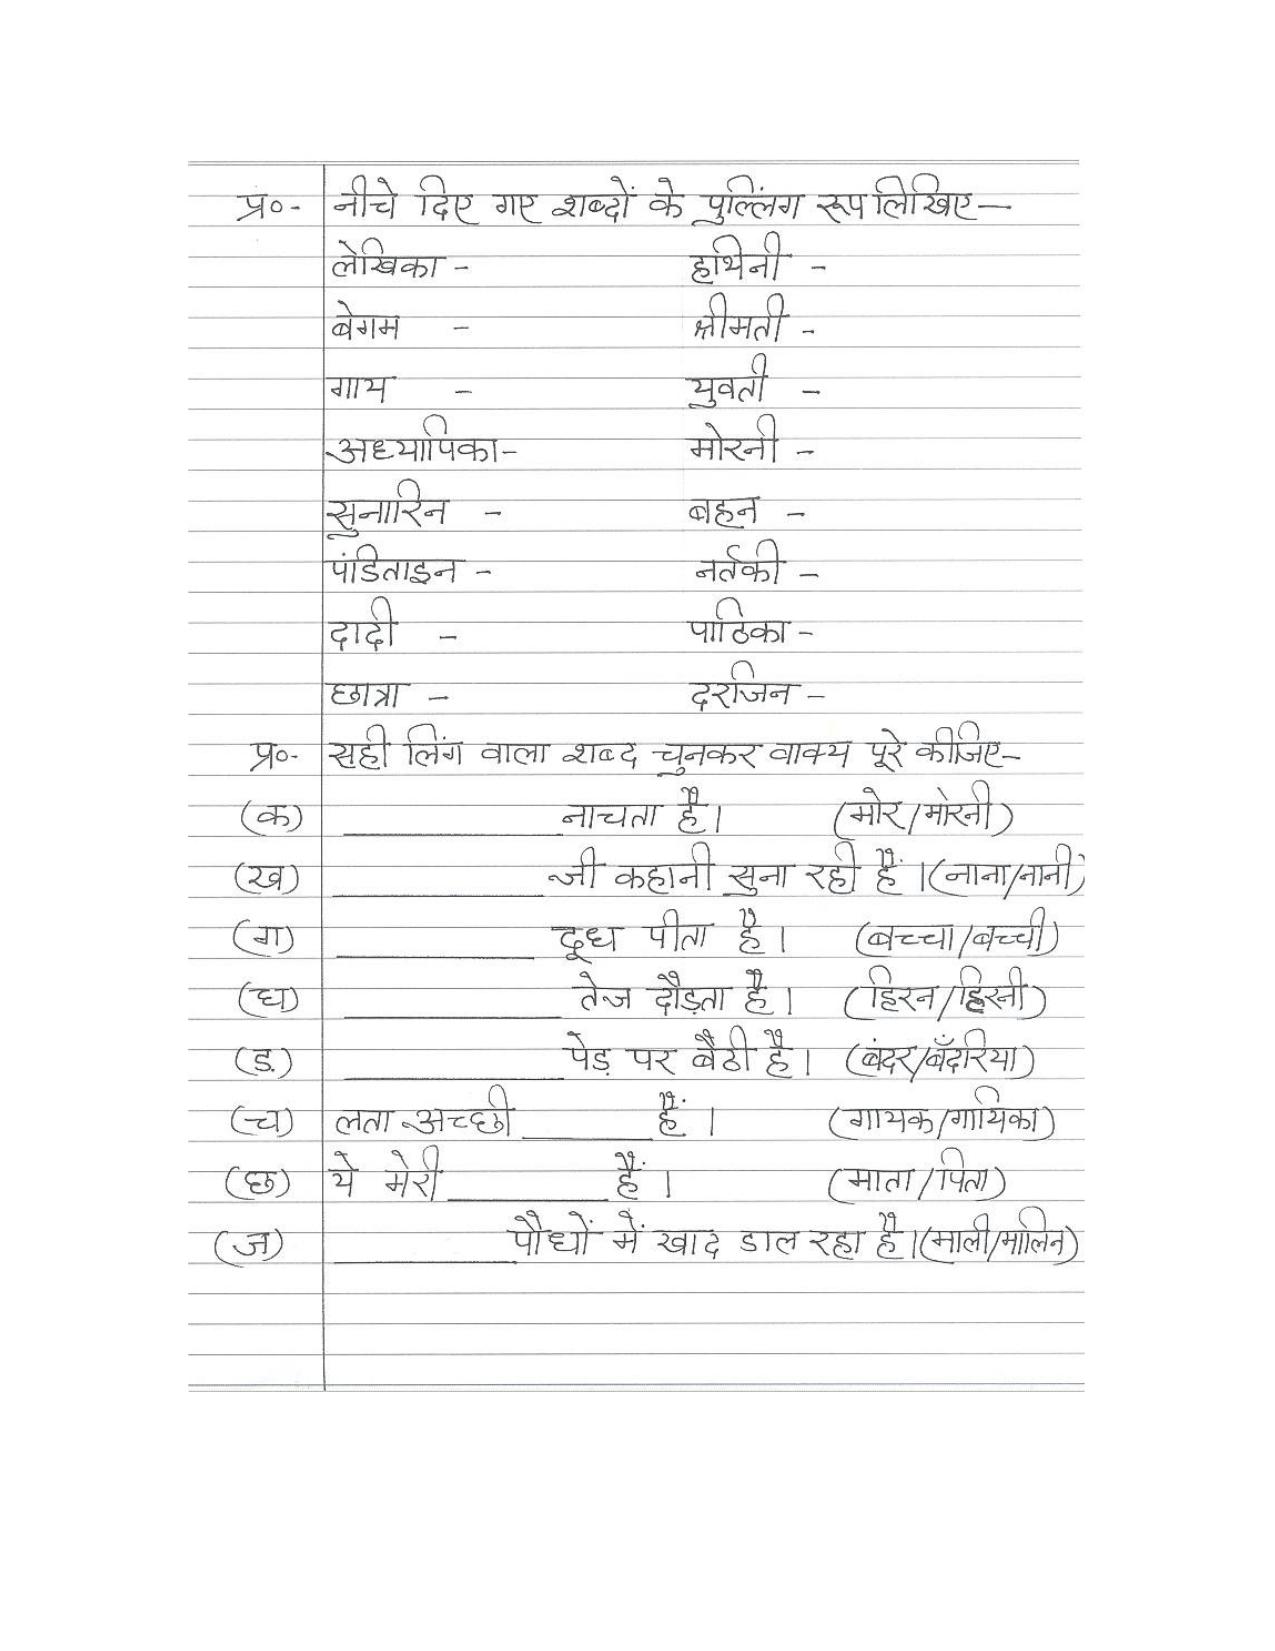 प्र०- नीचे दिए गए शब्दों के पुल्लिंग रूप लिखिए—
लेखिका - हथिनी -
बेगम - श्रीमती -
गाय - युवती -
अध्यापिका- मोरनी -
सुनारिन - बहन -
पंडिताइन - नर्तकी -
दादी - पाठिका -
छात्रा - दरजिन -
प्र०- सही लिंग वाला शब्द चुनकर वाक्य पूरे कीजिए-
(क) __________ नाचता है। (मोर/मोरनी)
(ख) __________ जी कहानी सुना रही हैं। (नाना/नानी)
(ग) __________ दूध पीता है। (बच्चा/बच्ची)
(घ) __________ तेज दौड़ता है। (हिरन/हिरनी)
(ड.) __________ पेड़ पर बैठी है। (बंदर/बँदरिया)
(च) लता अच्छी ______ हैं। (गायक/गायिका)
(छ) ये मेरी _______ हैं। (माता/पिता)
(ज) ________ पौधों में खाद डाल रहा है। (माली/मालिन)